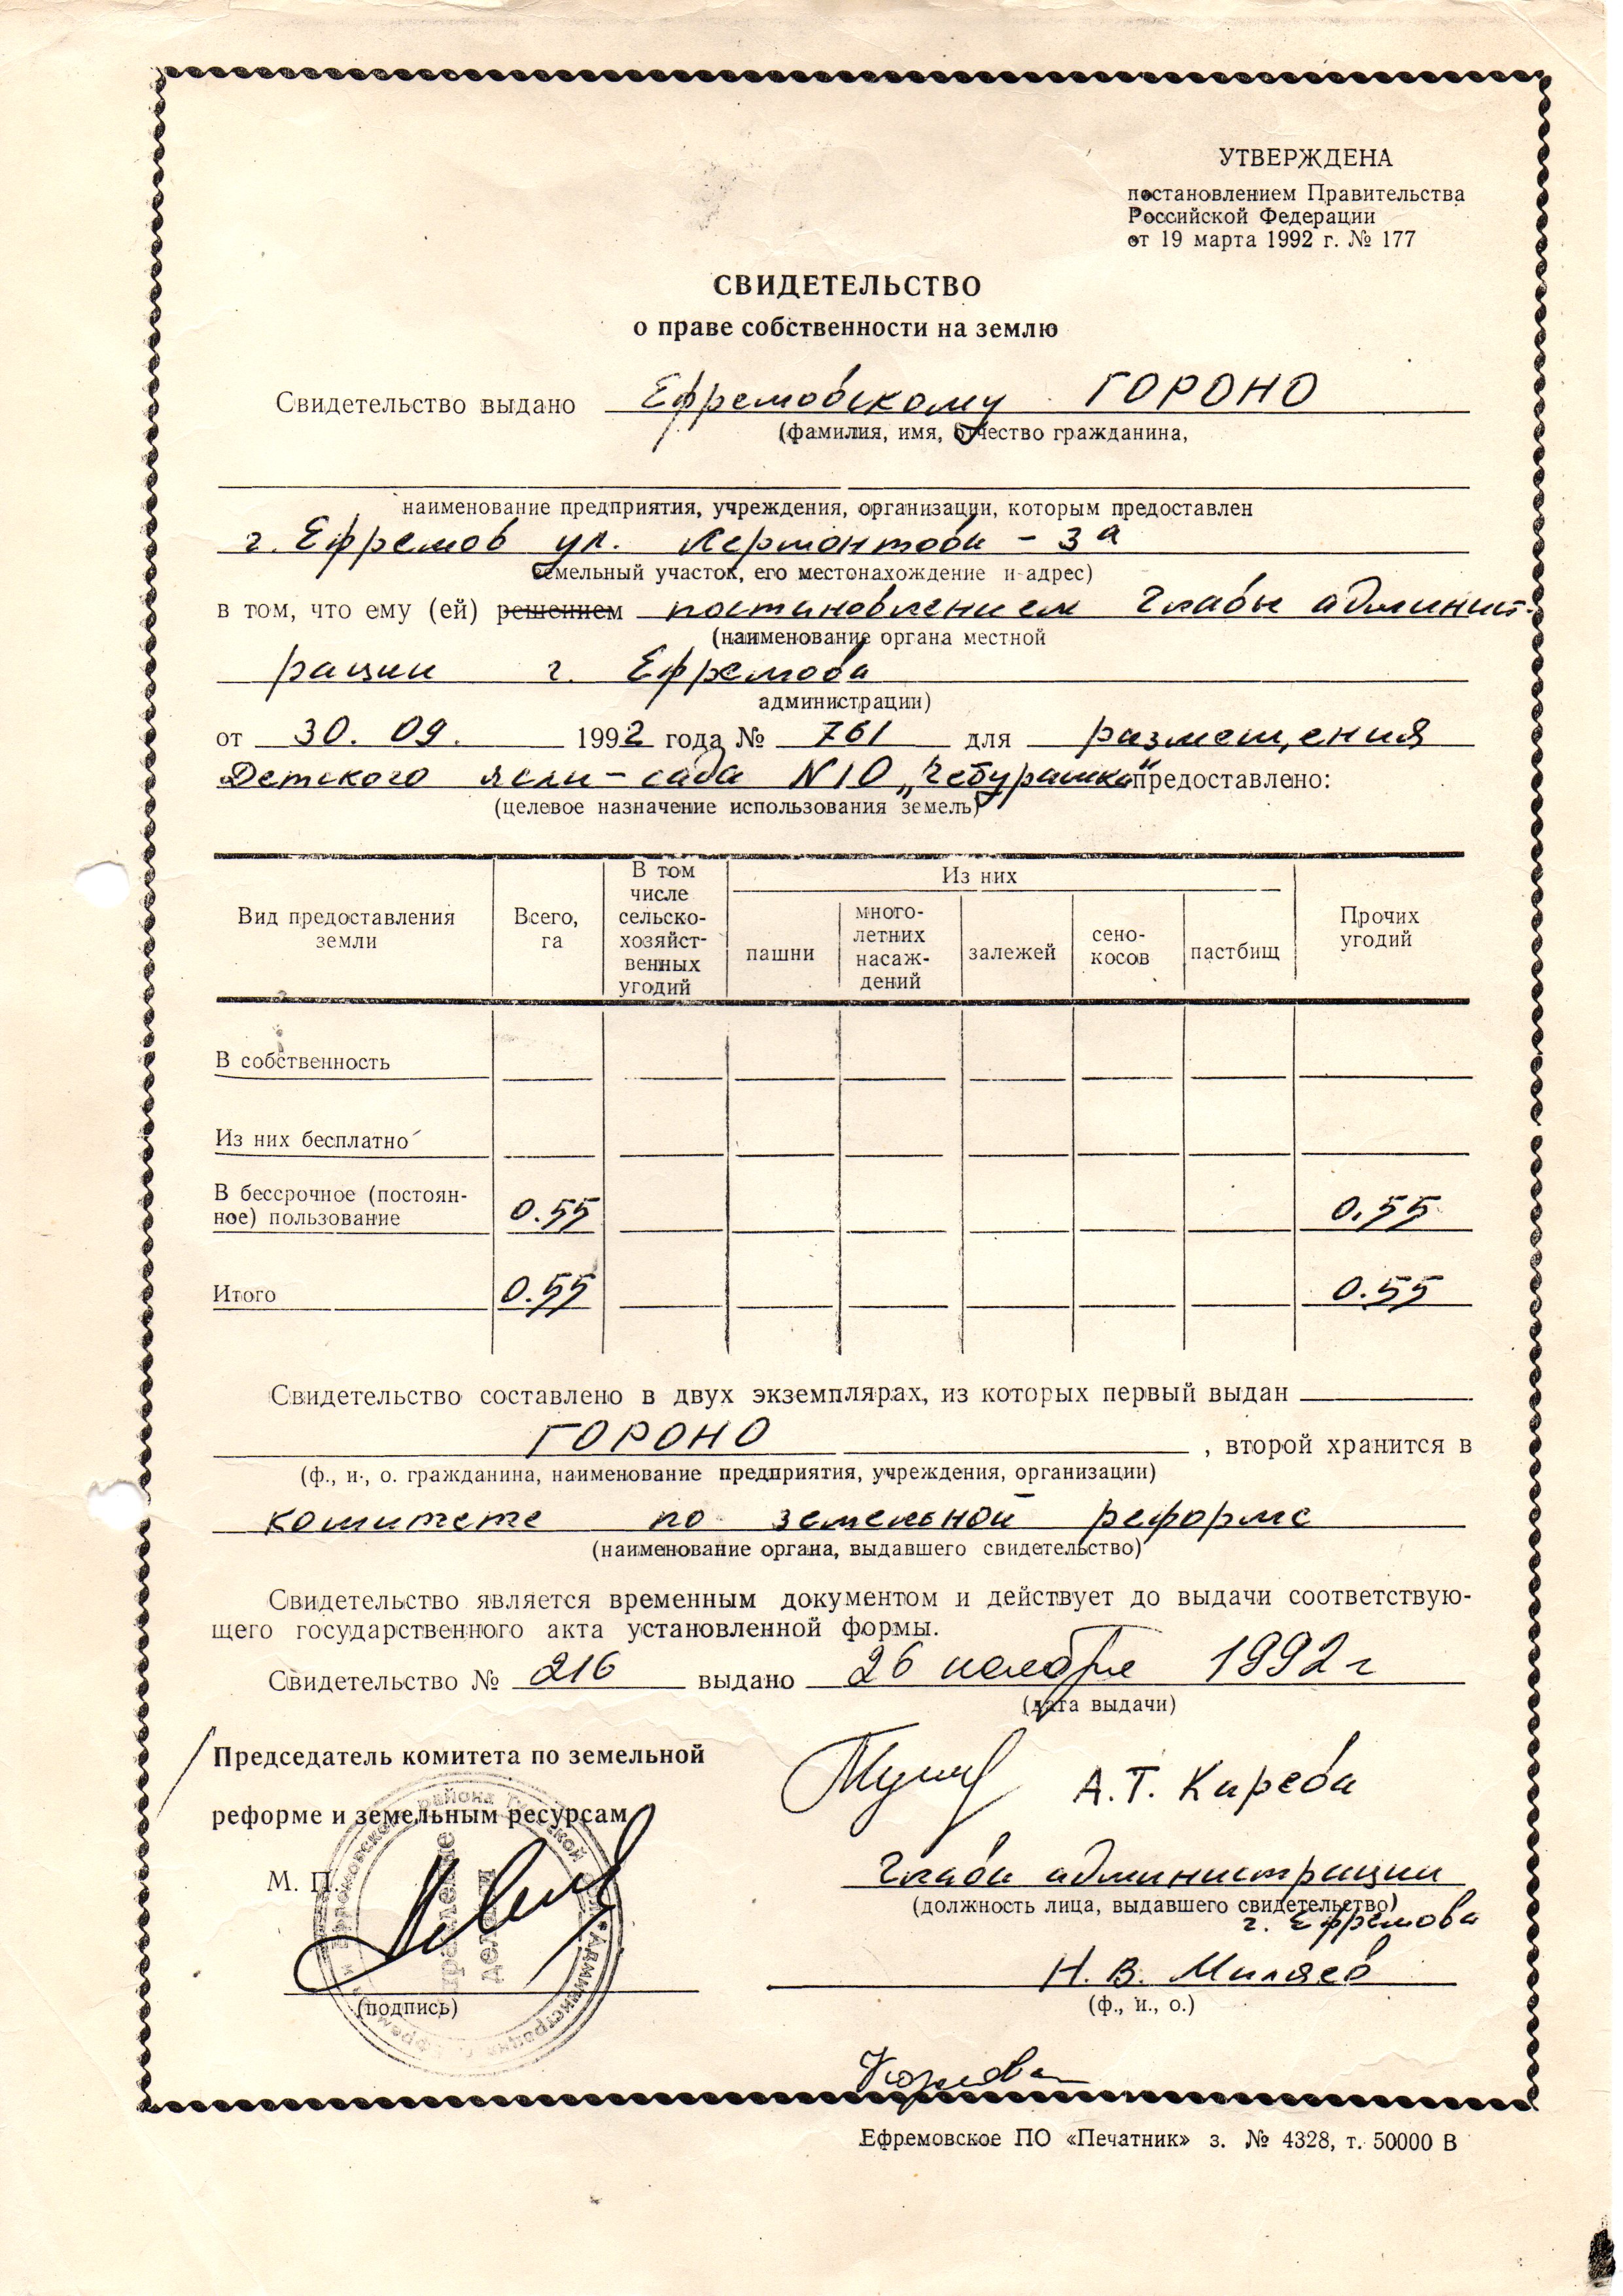 УТВЕРЖДЕНА
постановлением Правительства
Российской Федерации
от 19 марта 1992 г. № 177
СВИДЕТЕЛЬСТВО
о праве собственности на землю
Свидетельство выдано Ефремовскому ГОРОНО
(фамилия, имя, отчество гражданина,
наименование предприятия, учреждения, организации, которым предоставлен
г. Ефремов ул. Лермонтова - 3а
земельный участок, его местонахождение и адрес)
в том, что ему (ей) решением постановлением Главы админист-
(наименование органа местной
рации г. Ефремова
администрации)
от 30. 09. 1992 года № 761 для размещения
Детского ясли-сада N10 „Чебурашка" предоставлено:
(целевое назначение использования земель)
Вид предоставления земли Всего, га В том числе сельско-хозяйст-венных угодий Из них пашни много-летних насаж-дений залежей сено-косов пастбищ Прочих угодий
В собственность
Из них бесплатно
В бессрочное (постоян-
ное) пользование 0.55 0.55
Итого 0.55 0.55
Свидетельство составлено в двух экземплярах, из которых первый выдан
ГОРОНО , второй хранится в
(ф., и., о. гражданина, наименование предприятия, учреждения, организации)
комитете по земельной реформе
(наименование органа, выдавшего свидетельство)
Свидетельство является временным документом и действует до выдачи соответствую-
щего государственного акта установленной формы.
Свидетельство № 216 выдано 26 ноября 1992 г
(дата выдачи)
Председатель комитета по земельной
А.Т. Кирева
реформе и земельным ресурсам
М. П. Глава администрации
(должность лица, выдавшего свидетельство)
г. Ефремова
Н. В. Миляев
(подпись) (ф., и., о.)
Ефремовское ПО «Печатник» з. № 4328, т. 50000 В